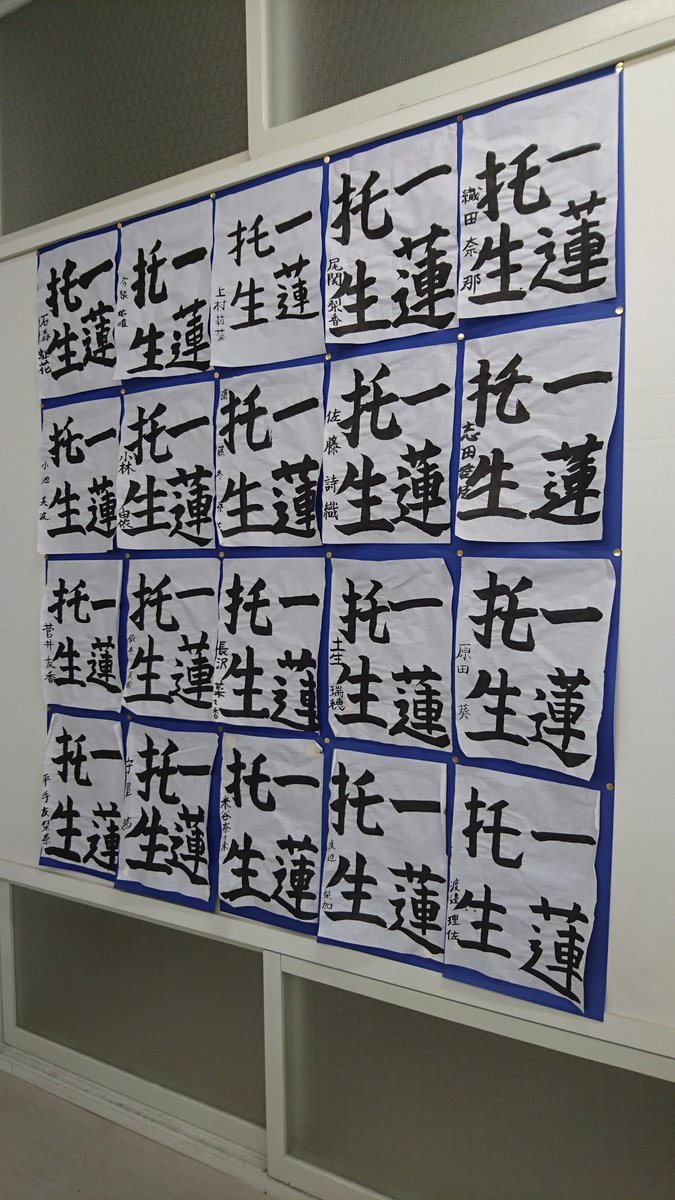 一蓮
托生
石森 虹花
一蓮
托生
今泉 佑唯
一蓮
托生
上村 莉菜
一蓮
托生
尾関 梨香
一蓮
托生
織田 奈那
一蓮
托生
小池 美波
一蓮
托生
小林 由依
一蓮
托生
藤 冬優花
一蓮
托生
佐藤 詩織
一蓮
托生
志田 愛佳
一蓮
托生
菅井 友香
一蓮
托生
鈴本 美愉
一蓮
托生
長沢 菜々香
一蓮
托生
土生 瑞穂
一蓮
托生
原田 葵
一蓮
托生
平手 友梨奈
一蓮
托生
守屋 茜
一蓮
托生
米谷 奈々未
一蓮
托生
渡辺 梨加
一蓮
托生
渡邉 理佐